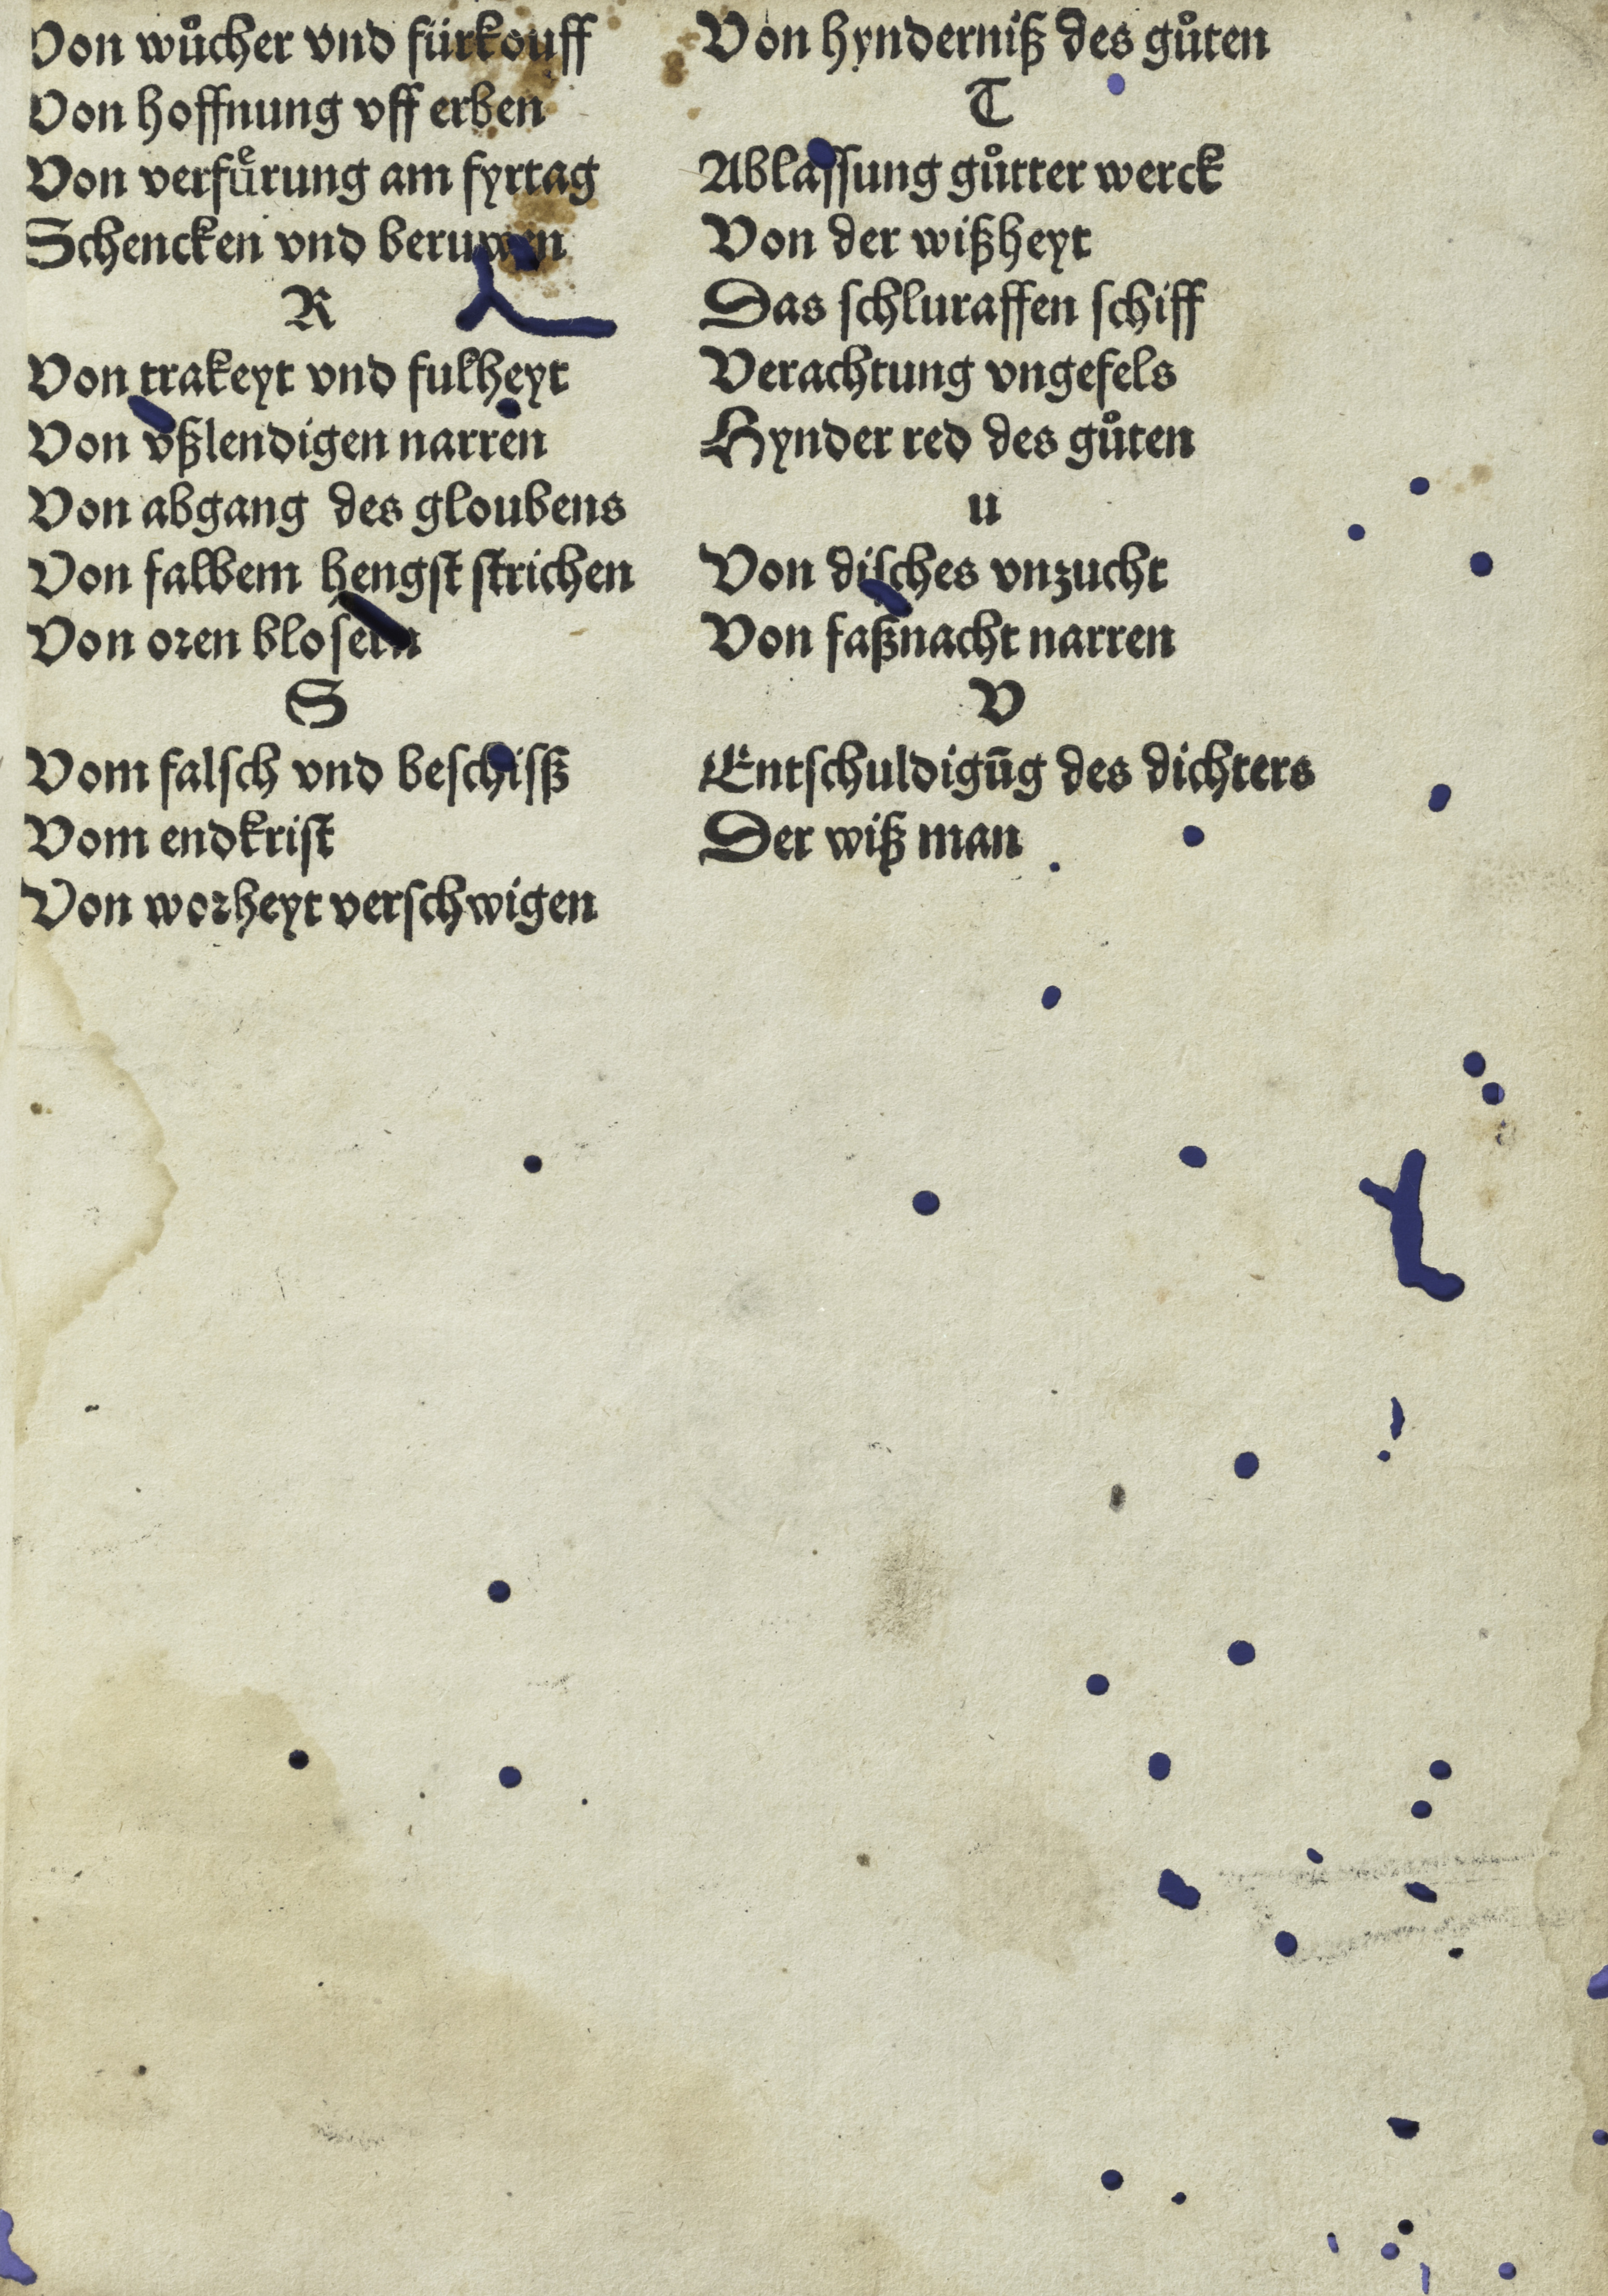 Von wůcher vnd fürkouff
Von hoffnung vff erben
Von verfuͤrung am fyrtag
Schencken vnd beruwen
R
Von trakeyt vnd fulheyt
Von vßlendigen narren
Von abgang des gloubens
Von falbem hengst strichen
Von oren blosern
S
Vom falsch vnd beschisß
Vom endkrist
Von worheyt verschwigen
Von hynderniß des gůten
T
Ablassung gůtter werck
Von der wißheyt
Das schluraffen schiff
Verachtung vngefels
Hynder red des gůten
u
Von disches vnzucht
Von faßnacht narren
V
Entschuldigūg des dichters
Der wiß man